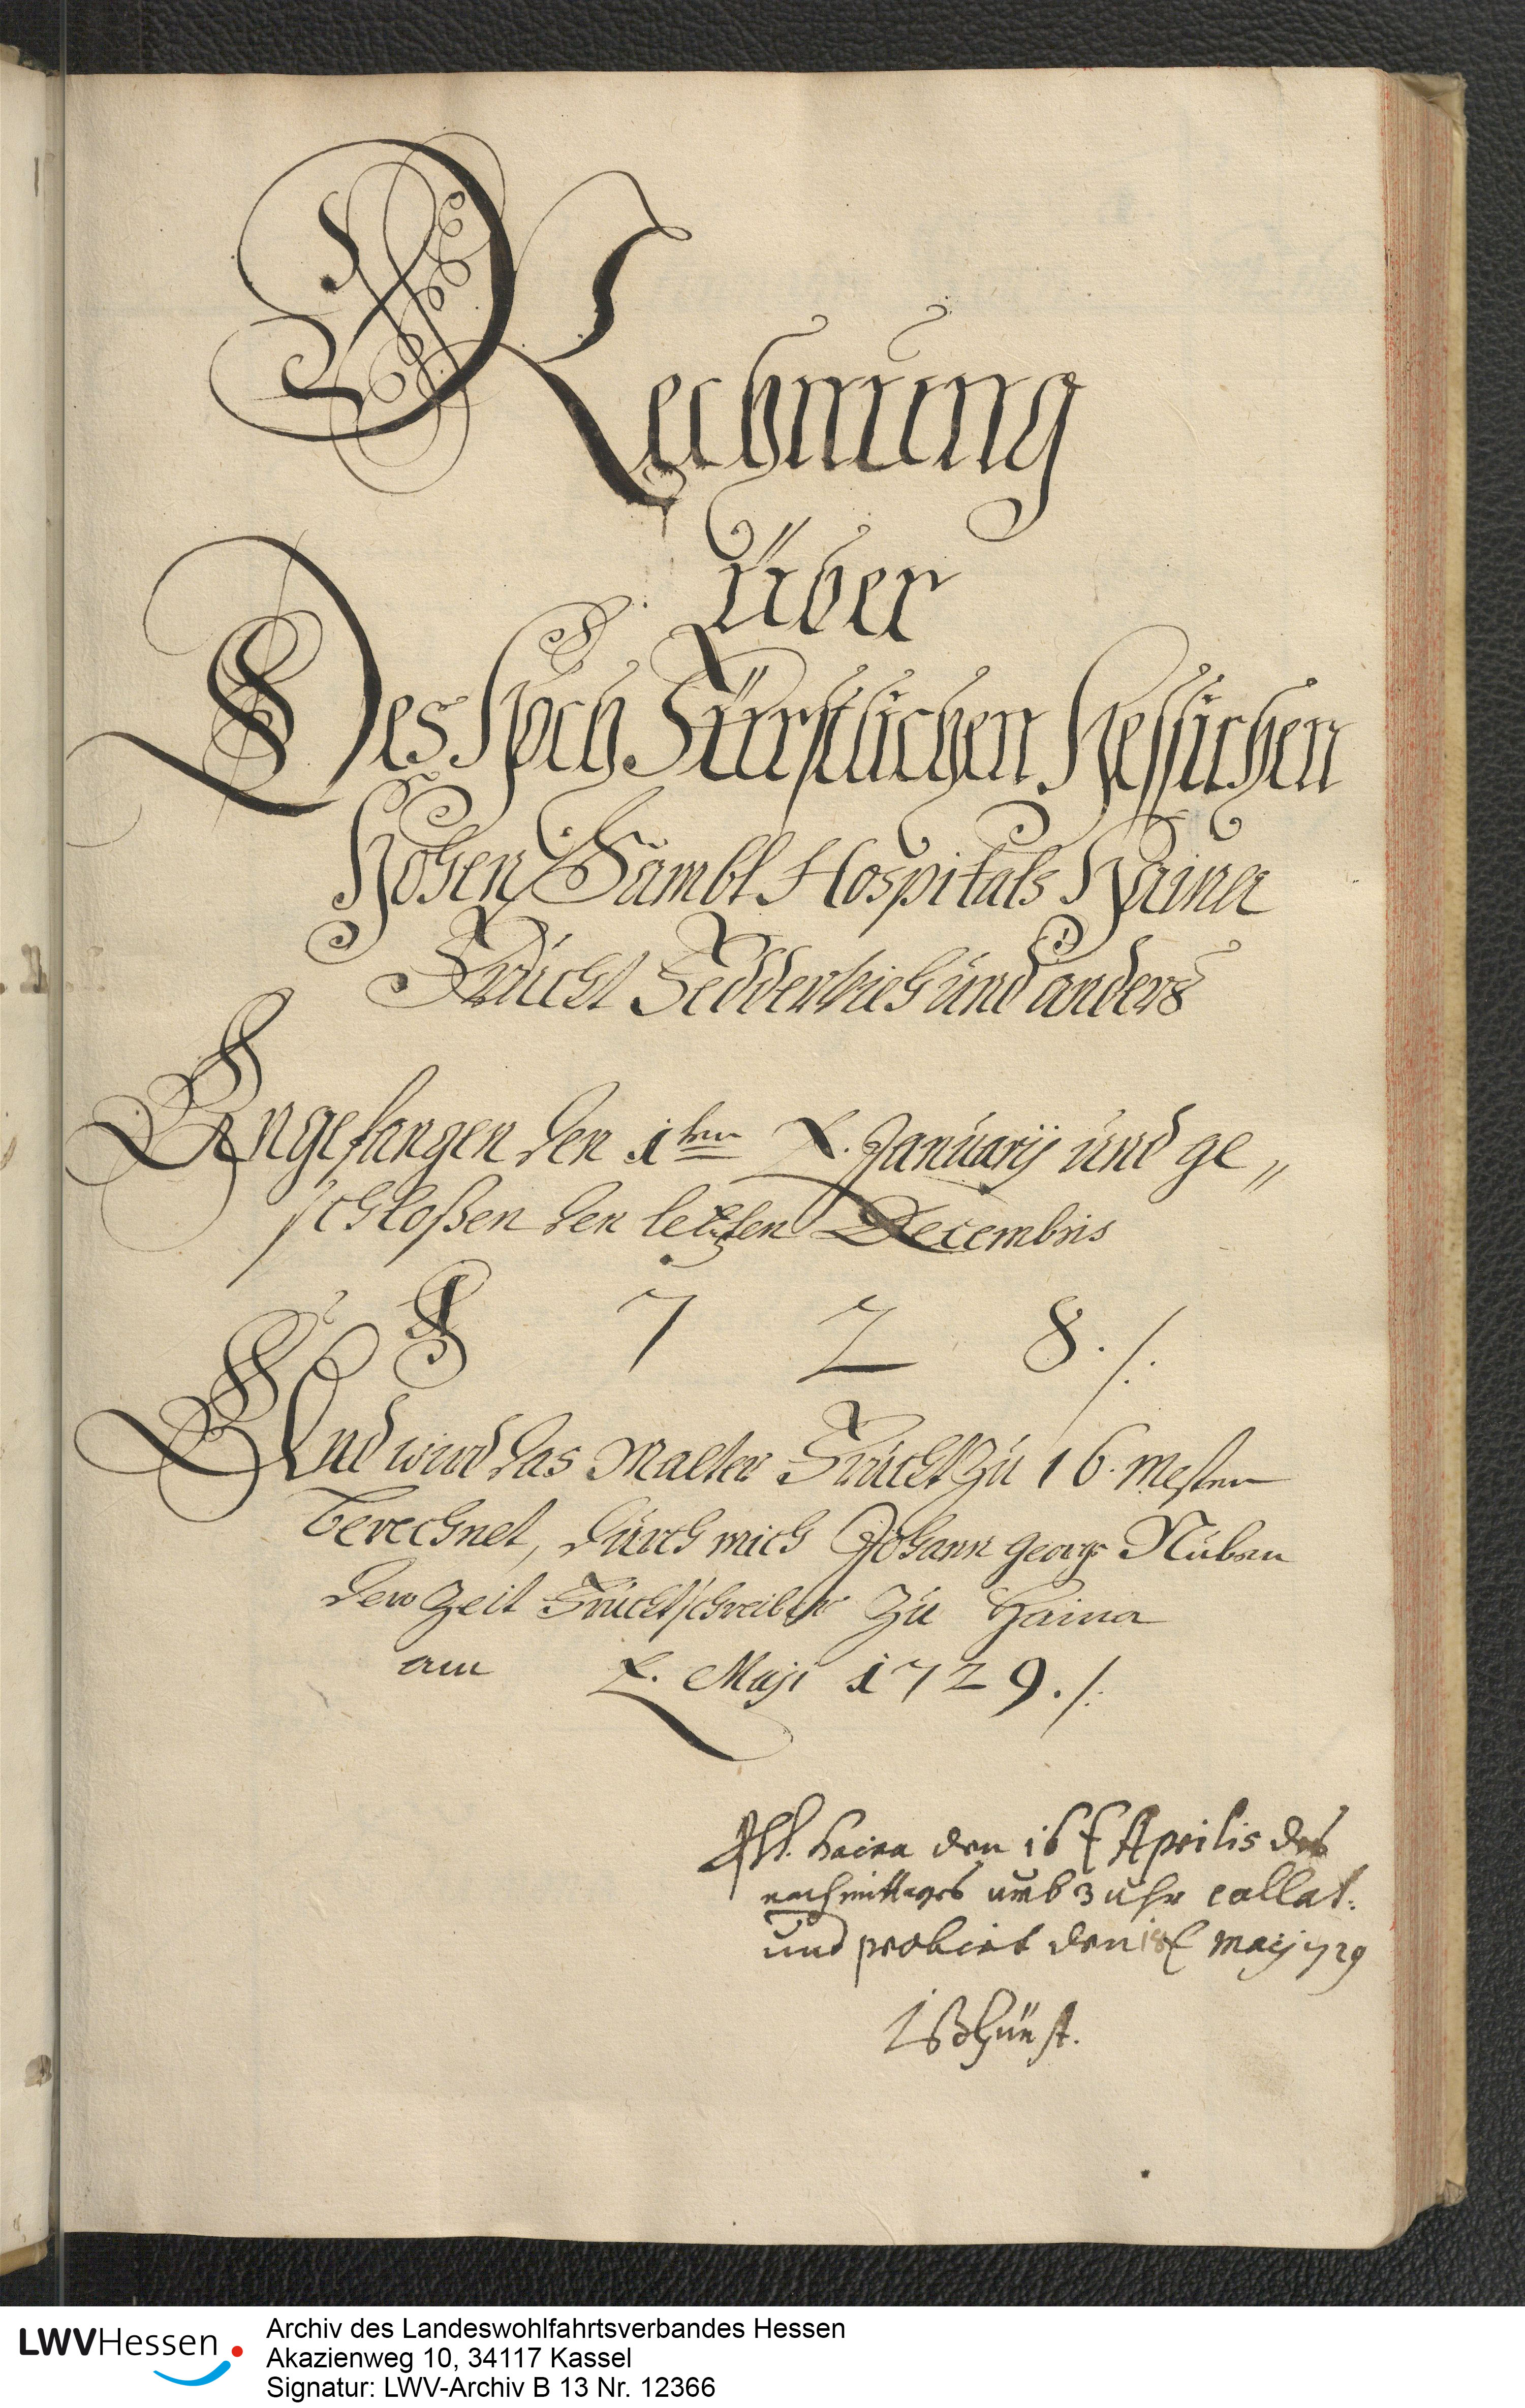 Rechnung
über
Des Hoch Fürstlichen Hessischen
Hohen Sambt Hospitals Haina
Frücht Feddervieh ünd anders
Angefangen den 1ten Januarÿ ünd ge„
schloßen den letzten Decembris
1 7 2 8 ./.
Und wird das Malter Frücht Zü 16. Mesten
berechnet, dürch mich Johann Georg
der Zeit Früchtschreiber Zü Haina
am Maji 1729 ./.
Haina den 16 t Aprilis des
nachmittages umb 3 uhr collat:
und probirt den 18 t Maij 1729
LWVHessen
Archiv des Landeswohlfahrtsverbandes Hessen
Akazienweg 10, 34117 Kassel
Signatur: LWV-Archiv B 13 Nr. 12366